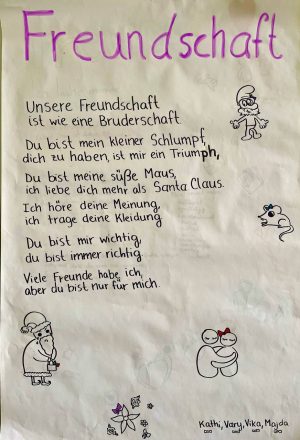 Freundschaft
Unsere Freundschaft
ist wie eine Bruderschaft.
Du bist mein kleiner Schlumpf,
dich zu haben, ist mir ein Triumph,
Du bist meine süße Maus,
ich liebe dich mehr als Santa Claus.
Ich höre deine Meinung,
ich trage deine Kleidung.
Du bist mir wichtig,
du bist immer richtig
Viele Freunde habe ich,
aber du bist nur für mich.
Kathi, Vary, Vika, Majda